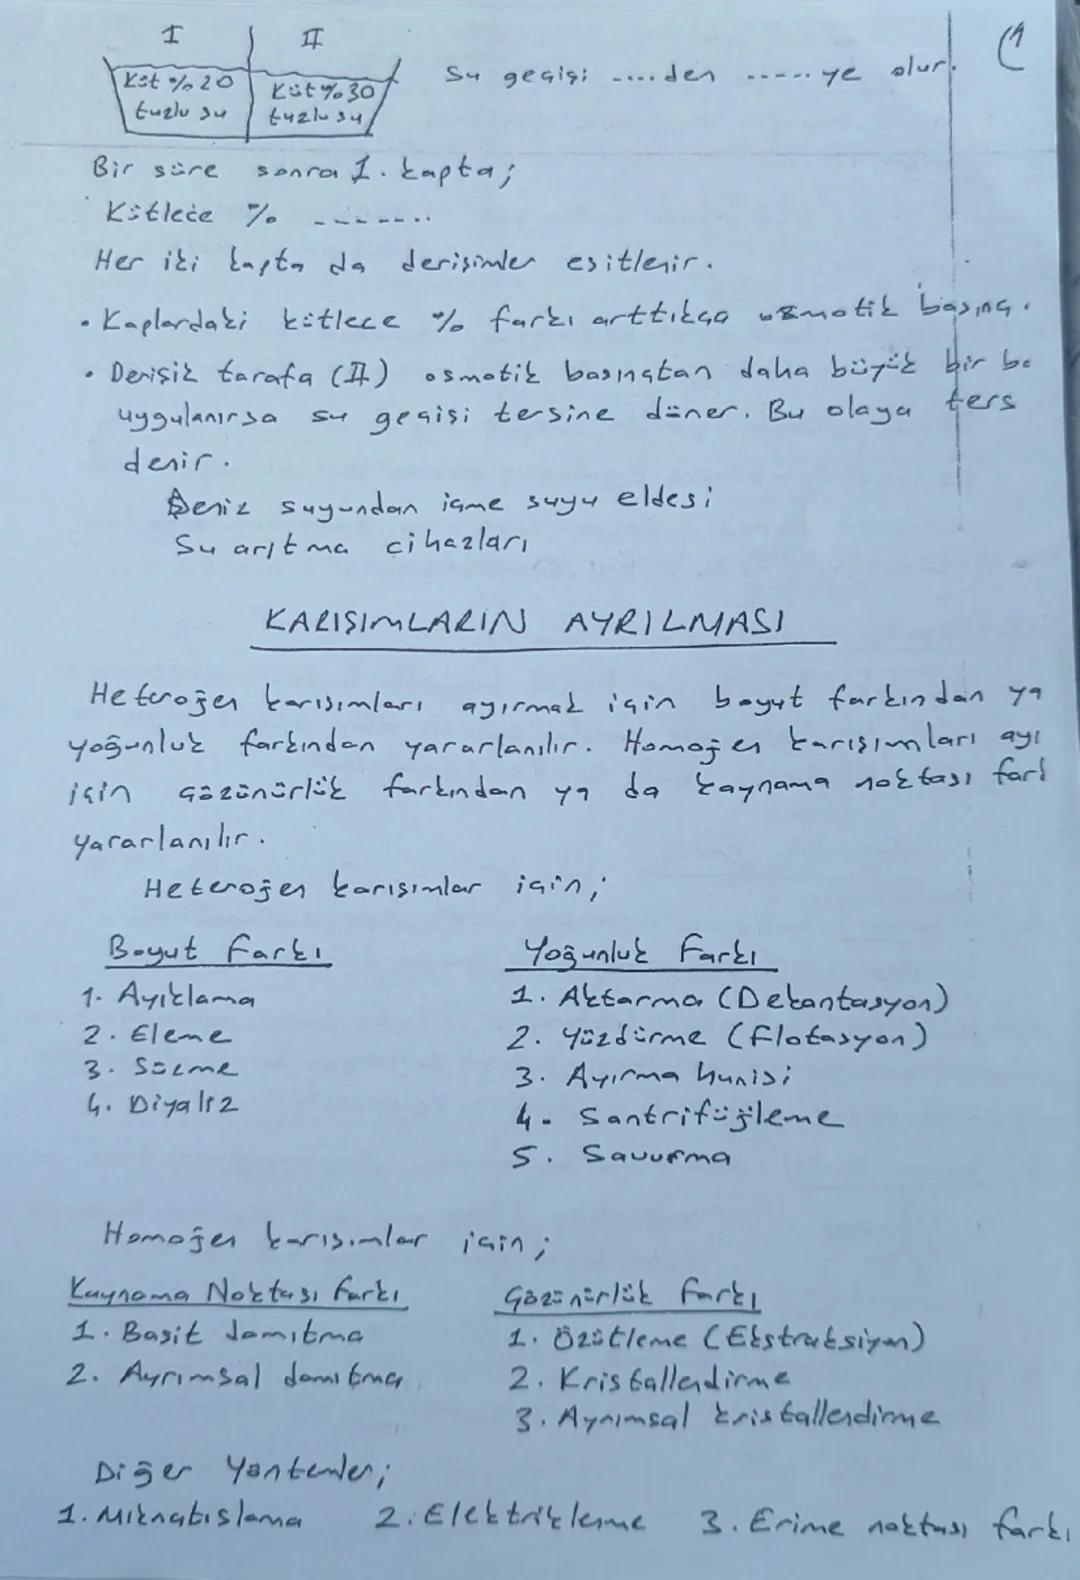 I II
Küt % 20 Küt % 30
tuzlu su tuzlu su
Su geçişi ....den ..... ye olur.
Bir süre sonra 1. kapta;
Kütlece % .......
Her iki kapta da derişimler eşitlenir.
• Kaplardaki kütlece % farkı arttıkça ozmotik basınç.
• Derişik tarafa (II) osmotik basınçtan daha büyük bir ba
uygulanırsa su geçişi tersine döner. Bu olaya ters
denir.
Deniz suyundan içme suyu eldesi
Su arıtma cihazları
KARIŞIMLARIN AYRILMASI
Heterojen karışımları ayırmak için boyut farkından ya
yoğunluk farkından yararlanılır. Homojen karışımları ayı
için çözünürlük farkından ya da kaynama noktası fark
yararlanılır.
Heterojen karışımlar için;
Boyut Farkı Yoğunluk Farkı
1. Ayıklama 1. Aktarma (Dekantasyon)
2. Eleme 2. Yüzdürme (Flotasyon)
3. Süzme 3. Ayırma hunisi
4. Diyaliz 4. Santrifüjleme
5. Savurma
Homojen karışımlar için;
Kaynama Noktası Farkı Çözünürlük Farkı
1. Basit damıtma 1. Özütleme (Ekstraksiyon)
2. Ayrımsal damıtma 2. Kristallendirme
3. Ayrımsal kristallendirme
Diğer Yöntemler;
1. Mıknatıslama 2. Elektriklenme 3. Erime noktası farkı